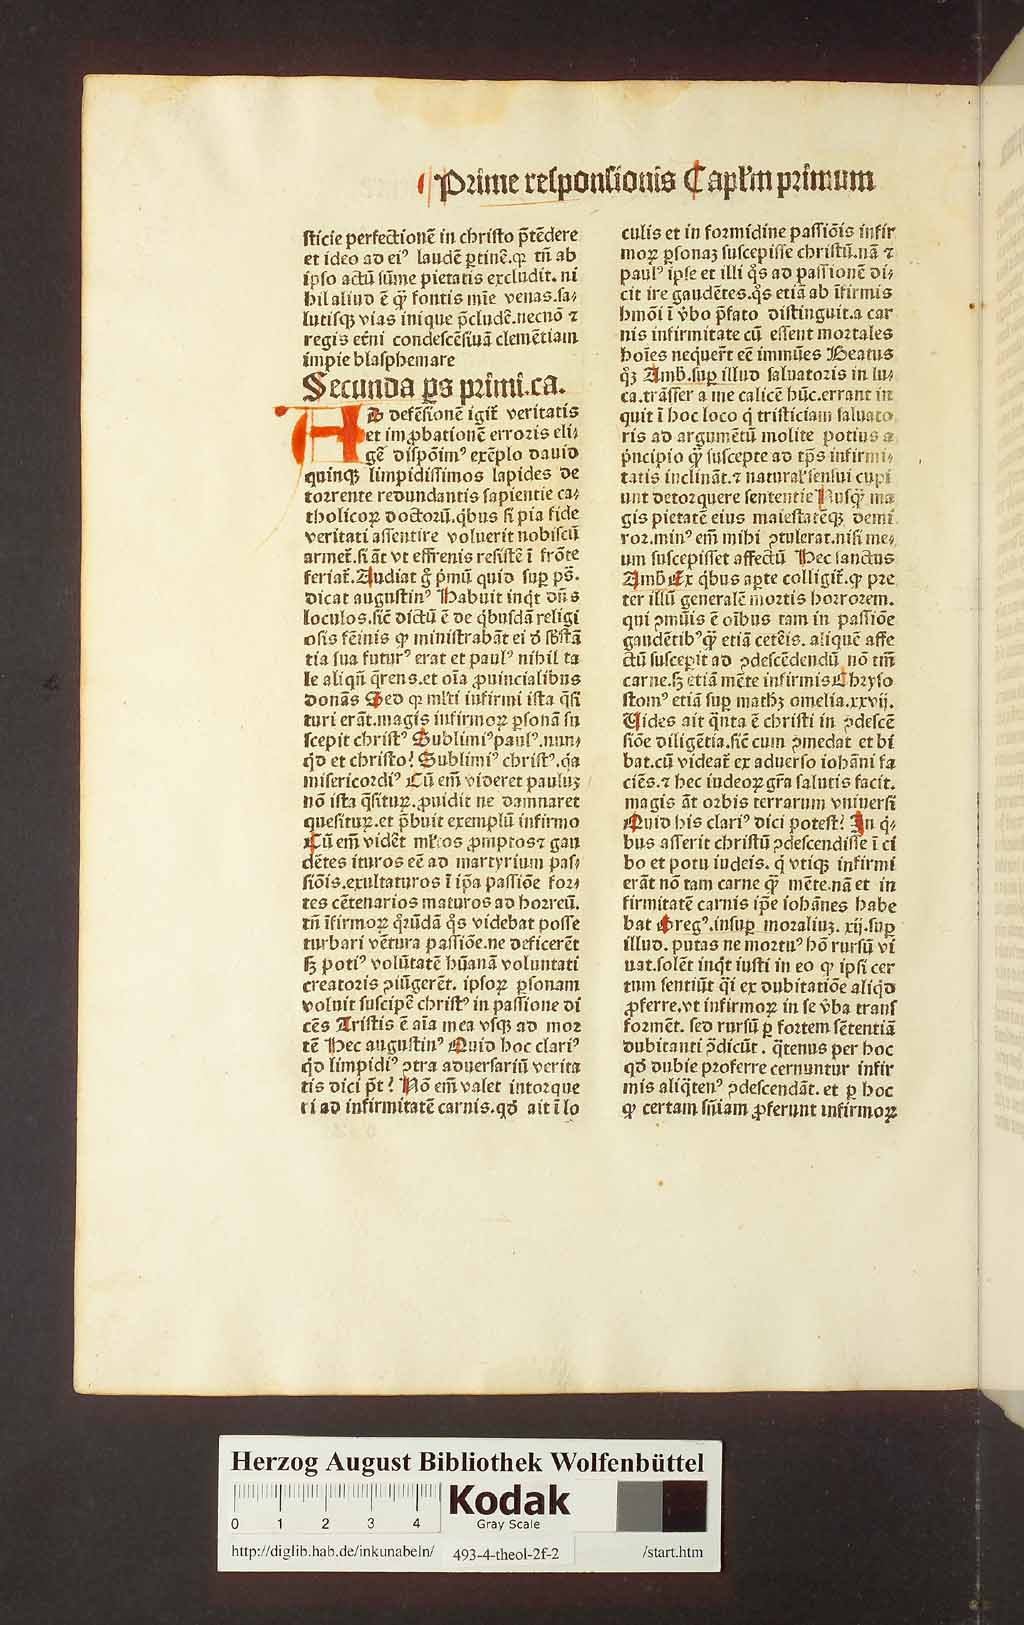 Prime responsionis Capl̄m primum
sticie perfectionē in christo p̄tēdere
et ideo ad eiꝰ laudē ꝑtinē.qꝛ tn̄ ab
ipso actū sūme pietatis excludit. ni
hil aliud ē qͣꝫ fontis mīe venas.sa⸗
lutisqꝫ vias inique p̄cludē.necnō ⁊
regis et̄ni condescēsiuā clemētiam
impie blasphemare
Secunda ꝑs primi.ca.
AD defēsionē igit̄ veritatis
et imꝓbationē erroris eli⸗
gē dispōimꝰ exēplo dauid
quinqꝫ limpidissimos lapides de
torrente redundantis sapientie ca⸗
tholicoꝝ doctorū.qͥbus si pia fide
veritati assentire voluerit nobiscū
armet̄.si āt vt effrenis resistē ī frōte
feriat̄.Audiat gͦ pͥmū quid suꝑ ps̄.
dicat augustinꝰ Habuit inqͥt dn̄s
loculos.sic̄ dictū ē de qͥbusdā religi
osis fēinis qꝫ ministrabāt ei d̄ sb̄stā
tia sua futurꝰ erat et paulꝰ nihil ta
le aliqn̄ q̄rens.et oīa ꝓuincialibus
donās Sed qꝛ ml̄ti infirmi ista q̄si
turi erāt.magis infirmoꝝ ꝑsonā su
scepit christꝰ Sublimiꝰ paulꝰ.nun⸗
qͥd et christo? Sublimiꝰ christꝰ.qͣ
misericordiꝰ Cū em̄ videret pauluꝫ
nō ista q̄situꝝ.ꝓuidit ne damnaret
quesituꝝ.et p̄buit exemplū infirmo
Cū em̄ vidēt ml̄tos ꝓmptos ⁊ gau
dētes ituros eē ad martyrium pas⸗
siōis.exultaturos ī ip̄a passiōe for⸗
tes cētenarios maturos ad horreū.
tn̄ īfirmoꝝ qͦrūdā qͦs videbat posse
turbari vētura passiōe.ne deficerēt
sꝫ potiꝰ volūtatē hūanā voluntati
creatoris ꝯiūgerēt. ipsoꝝ ꝑsonam
voluit suscipē christꝰ in passione di
cēs Tristis ē aīa mea vsqꝫ ad mor
tē Hec augustinꝰ Quid hoc clariꝰ
qͥd limpidiꝰ ꝯtra aduersariū verita
tis dici pt̄? Nō em̄ valet intorque
ri ad infirmitatē carnis.qd̄ ait ī lo
culis et in formidine passiōis infir
moꝝ ꝑsonaꝫ suscepisse christū.nā ⁊
paulꝰ ipse et illi qͦs ad passionē di⸗
cit ire gaudētes.qͦs etiā ab īfirmis
hmōi ī v̄bo p̄fato distinguit.a car
nis infirmitate cū essent mortales
hoīes nequer̄t eē immūes Beatus
qͦꝫ Amb̄.suꝑ illud saluatoris in lu⸗
ca.trāsfer a me calicē hūc.errant in
quit ī hoc loco qͥ tristiciam saluato
ris ad argumētū molite potius a
pͥncipio qͣꝫ suscepte ad tp̄s infirmi⸗
tatis inclināt.⁊ naturalꝰ sensui cupi
unt detorquere sententie Nusqͣꝫ ma
gis pietatē eius maiestatēqꝫ demi
ror.minꝰ em̄ mihi ꝯtulerat.nisi me⸗
um suscepisset affectū Hec sanctus
Amb̄ Ex qͥbus aꝑte colligit̄.qꝫ pre
ter illū generalē mortis horrorem.
qui ꝯmūis ē oībus tam in passiōe
gaudētibꝰ qͣꝫ etiā cetēis. aliquē affe
ctū suscepit ad ꝯdescēdendū nō tm̄
carne.sꝫ etiā mēte infirmis Chryso
stomꝰ etiā suꝑ mathꝫ omelia.xxvij.
Vides ait qͣnta ē christi in ꝯdescē
siōe diligētia.sic̄ cum ꝯmedat et bi
bat.cū videat̄ ex aduerso iohāni fa
ciēs.⁊ hec iudeoꝝ gr̄a salutis facit.
magis āt orbis terrarum vniuersi
Quid his clariꝰ dici potest? In qͥ⸗
bus asserit christū ꝯdescendisse ī ci
bo et potu iudeis. qͥ vtiqꝫ infirmi
erāt nō tam carne qͣꝫ mēte.nā et in
firmitatē carnis ip̄e iohānes habe
bat Gregꝰ.insuꝑ moraliuꝫ. xij.suꝑ
illud. putas ne mortuꝰ hō rursū vi
uat.solēt inqͥt iusti in eo qꝫ ipsi cer
tum sentiūt qͣsi ex dubitatiōe aliqͥd
ꝓferre.vt infirmoꝝ in se v̄ba trans
formēt. sed rursū ꝑ fortem sētentiā
dubitanti ꝯ̄dicūt. qͣtenus per hoc
qd̄ dubie proferre cernuntur infir
mis aliqͣtenꝰ ꝯdescendāt. et ꝑ hoc
qꝫ certam sn̄iam ꝓferunt infirmoꝝ
Herzog August Bibliothek Wolfenbüttel
0 1 2 3 4
Kodak
Gray Scale
http://diglib.hab.de/inkunabeln/ 493-4-theol-2f-2 /start.htm